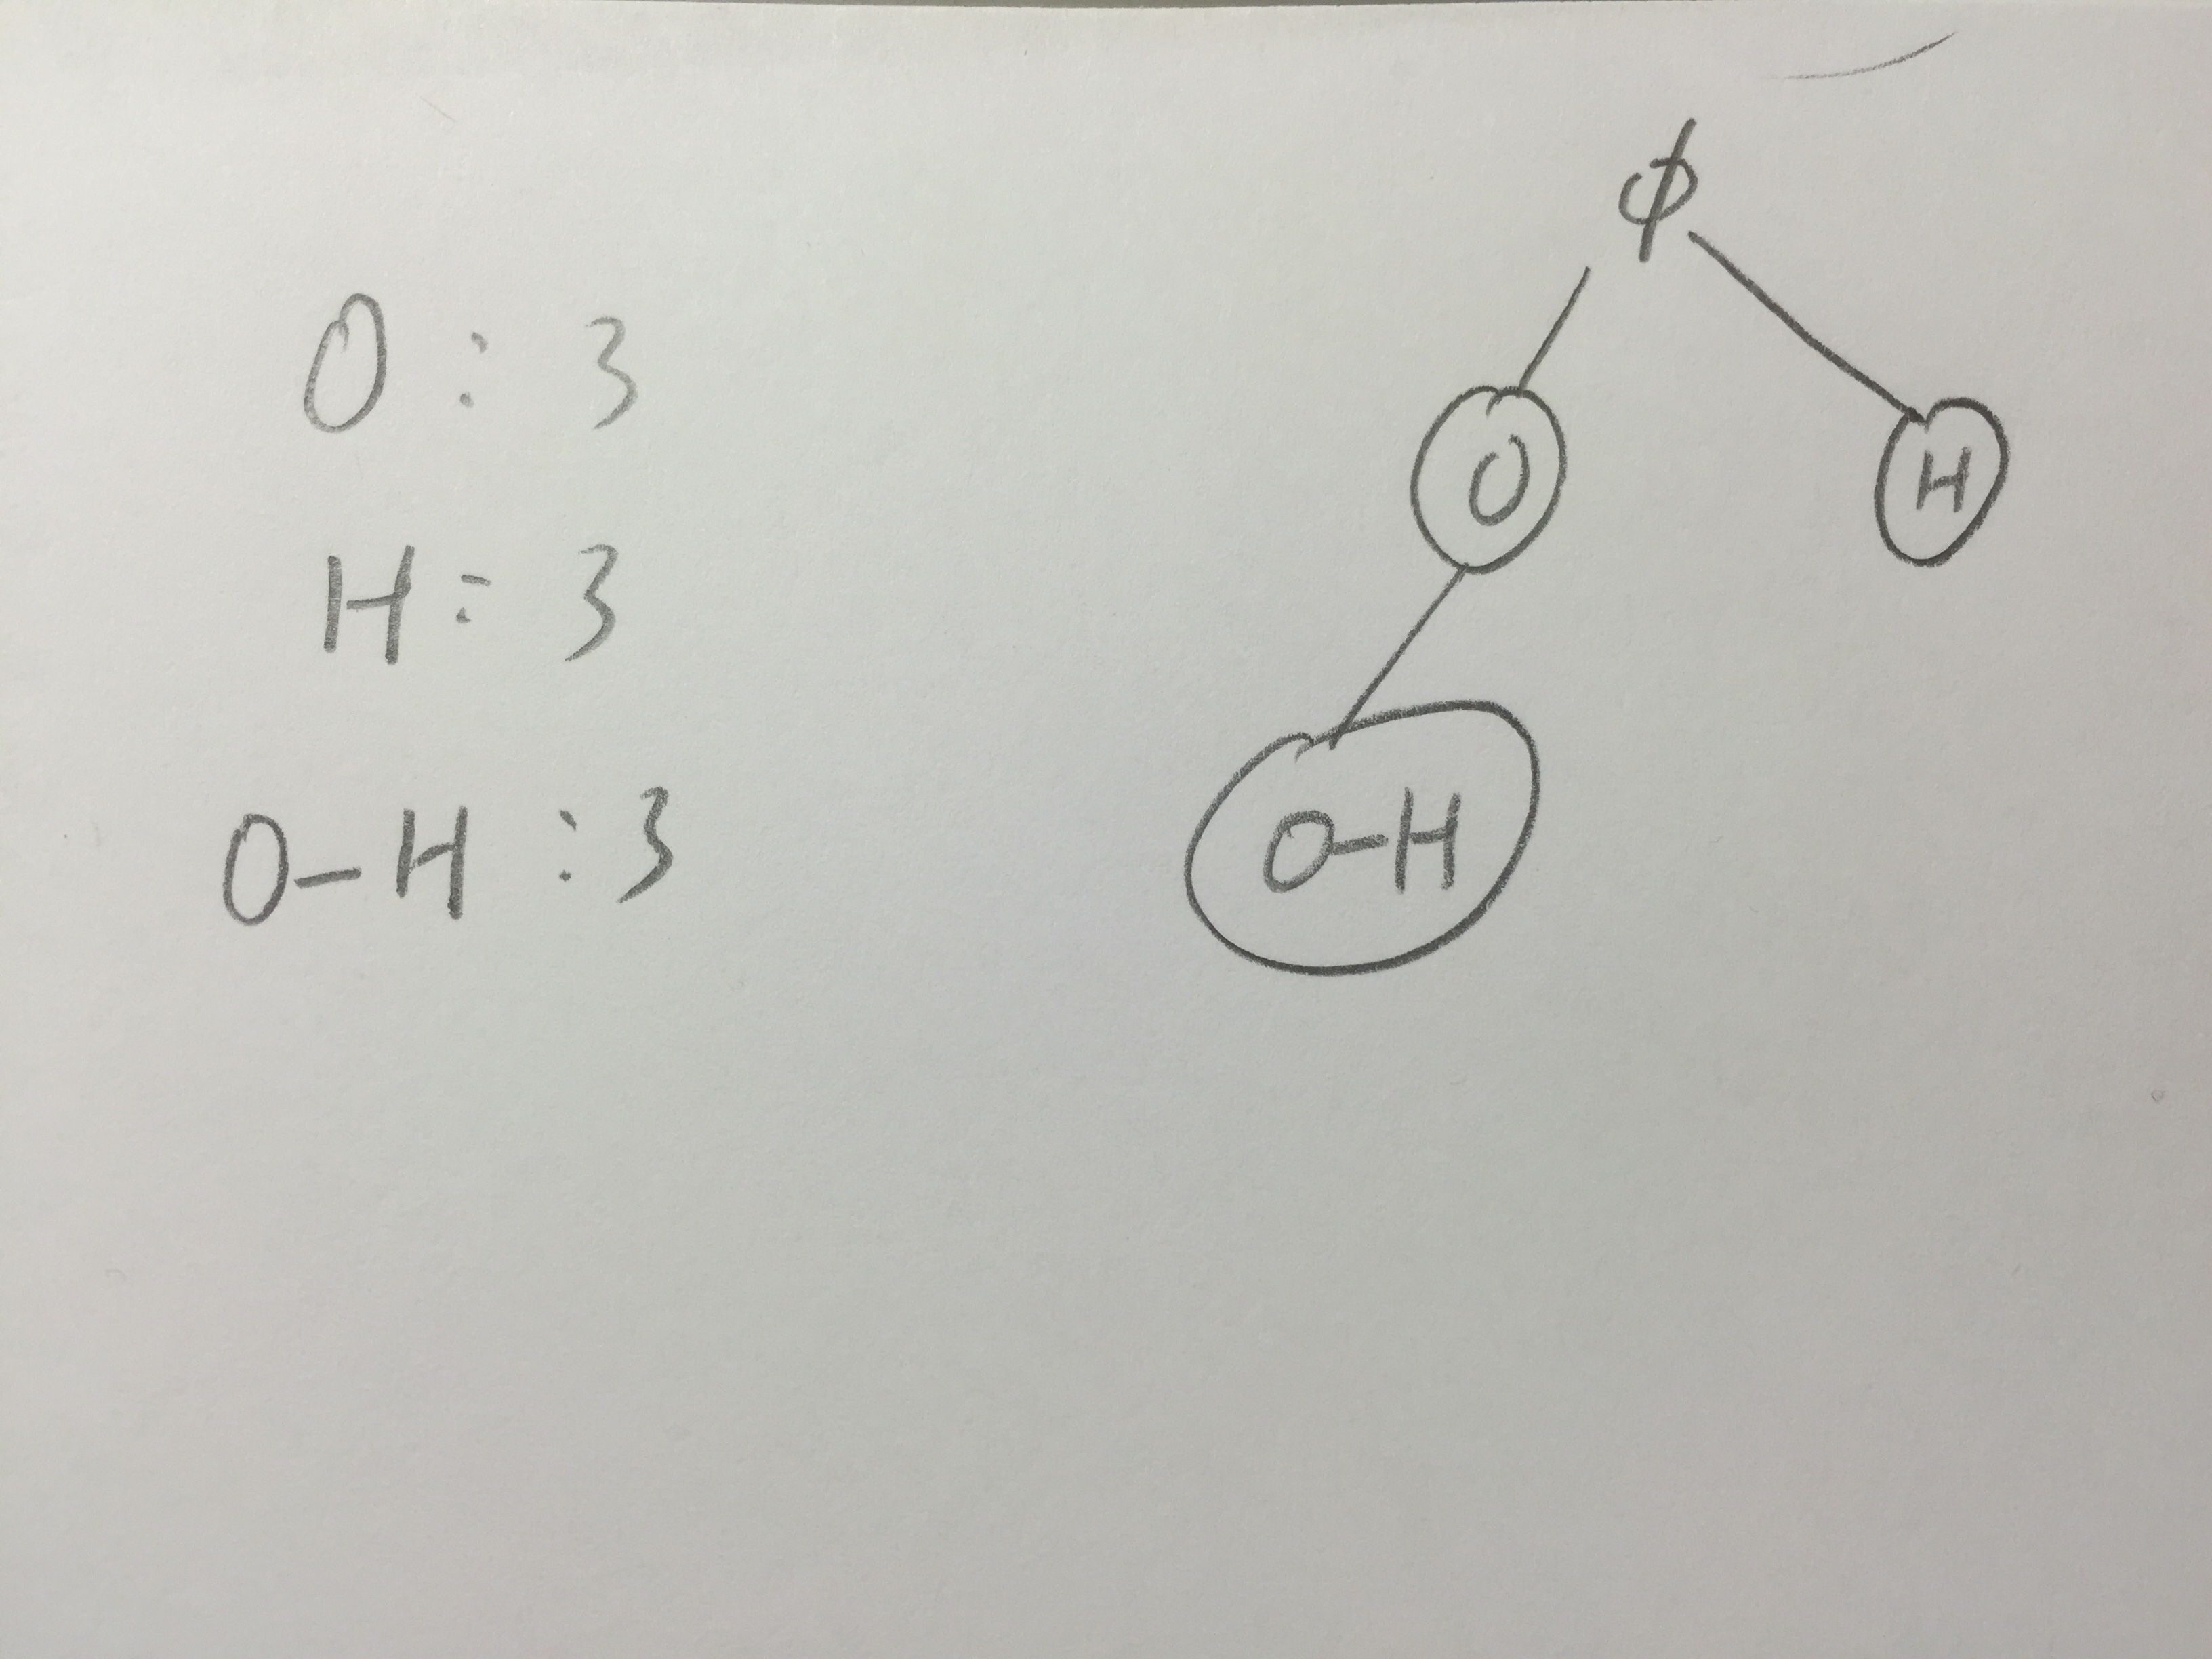 O : 3
H : 3
O-H : 3
ϕ
O
H
O-H